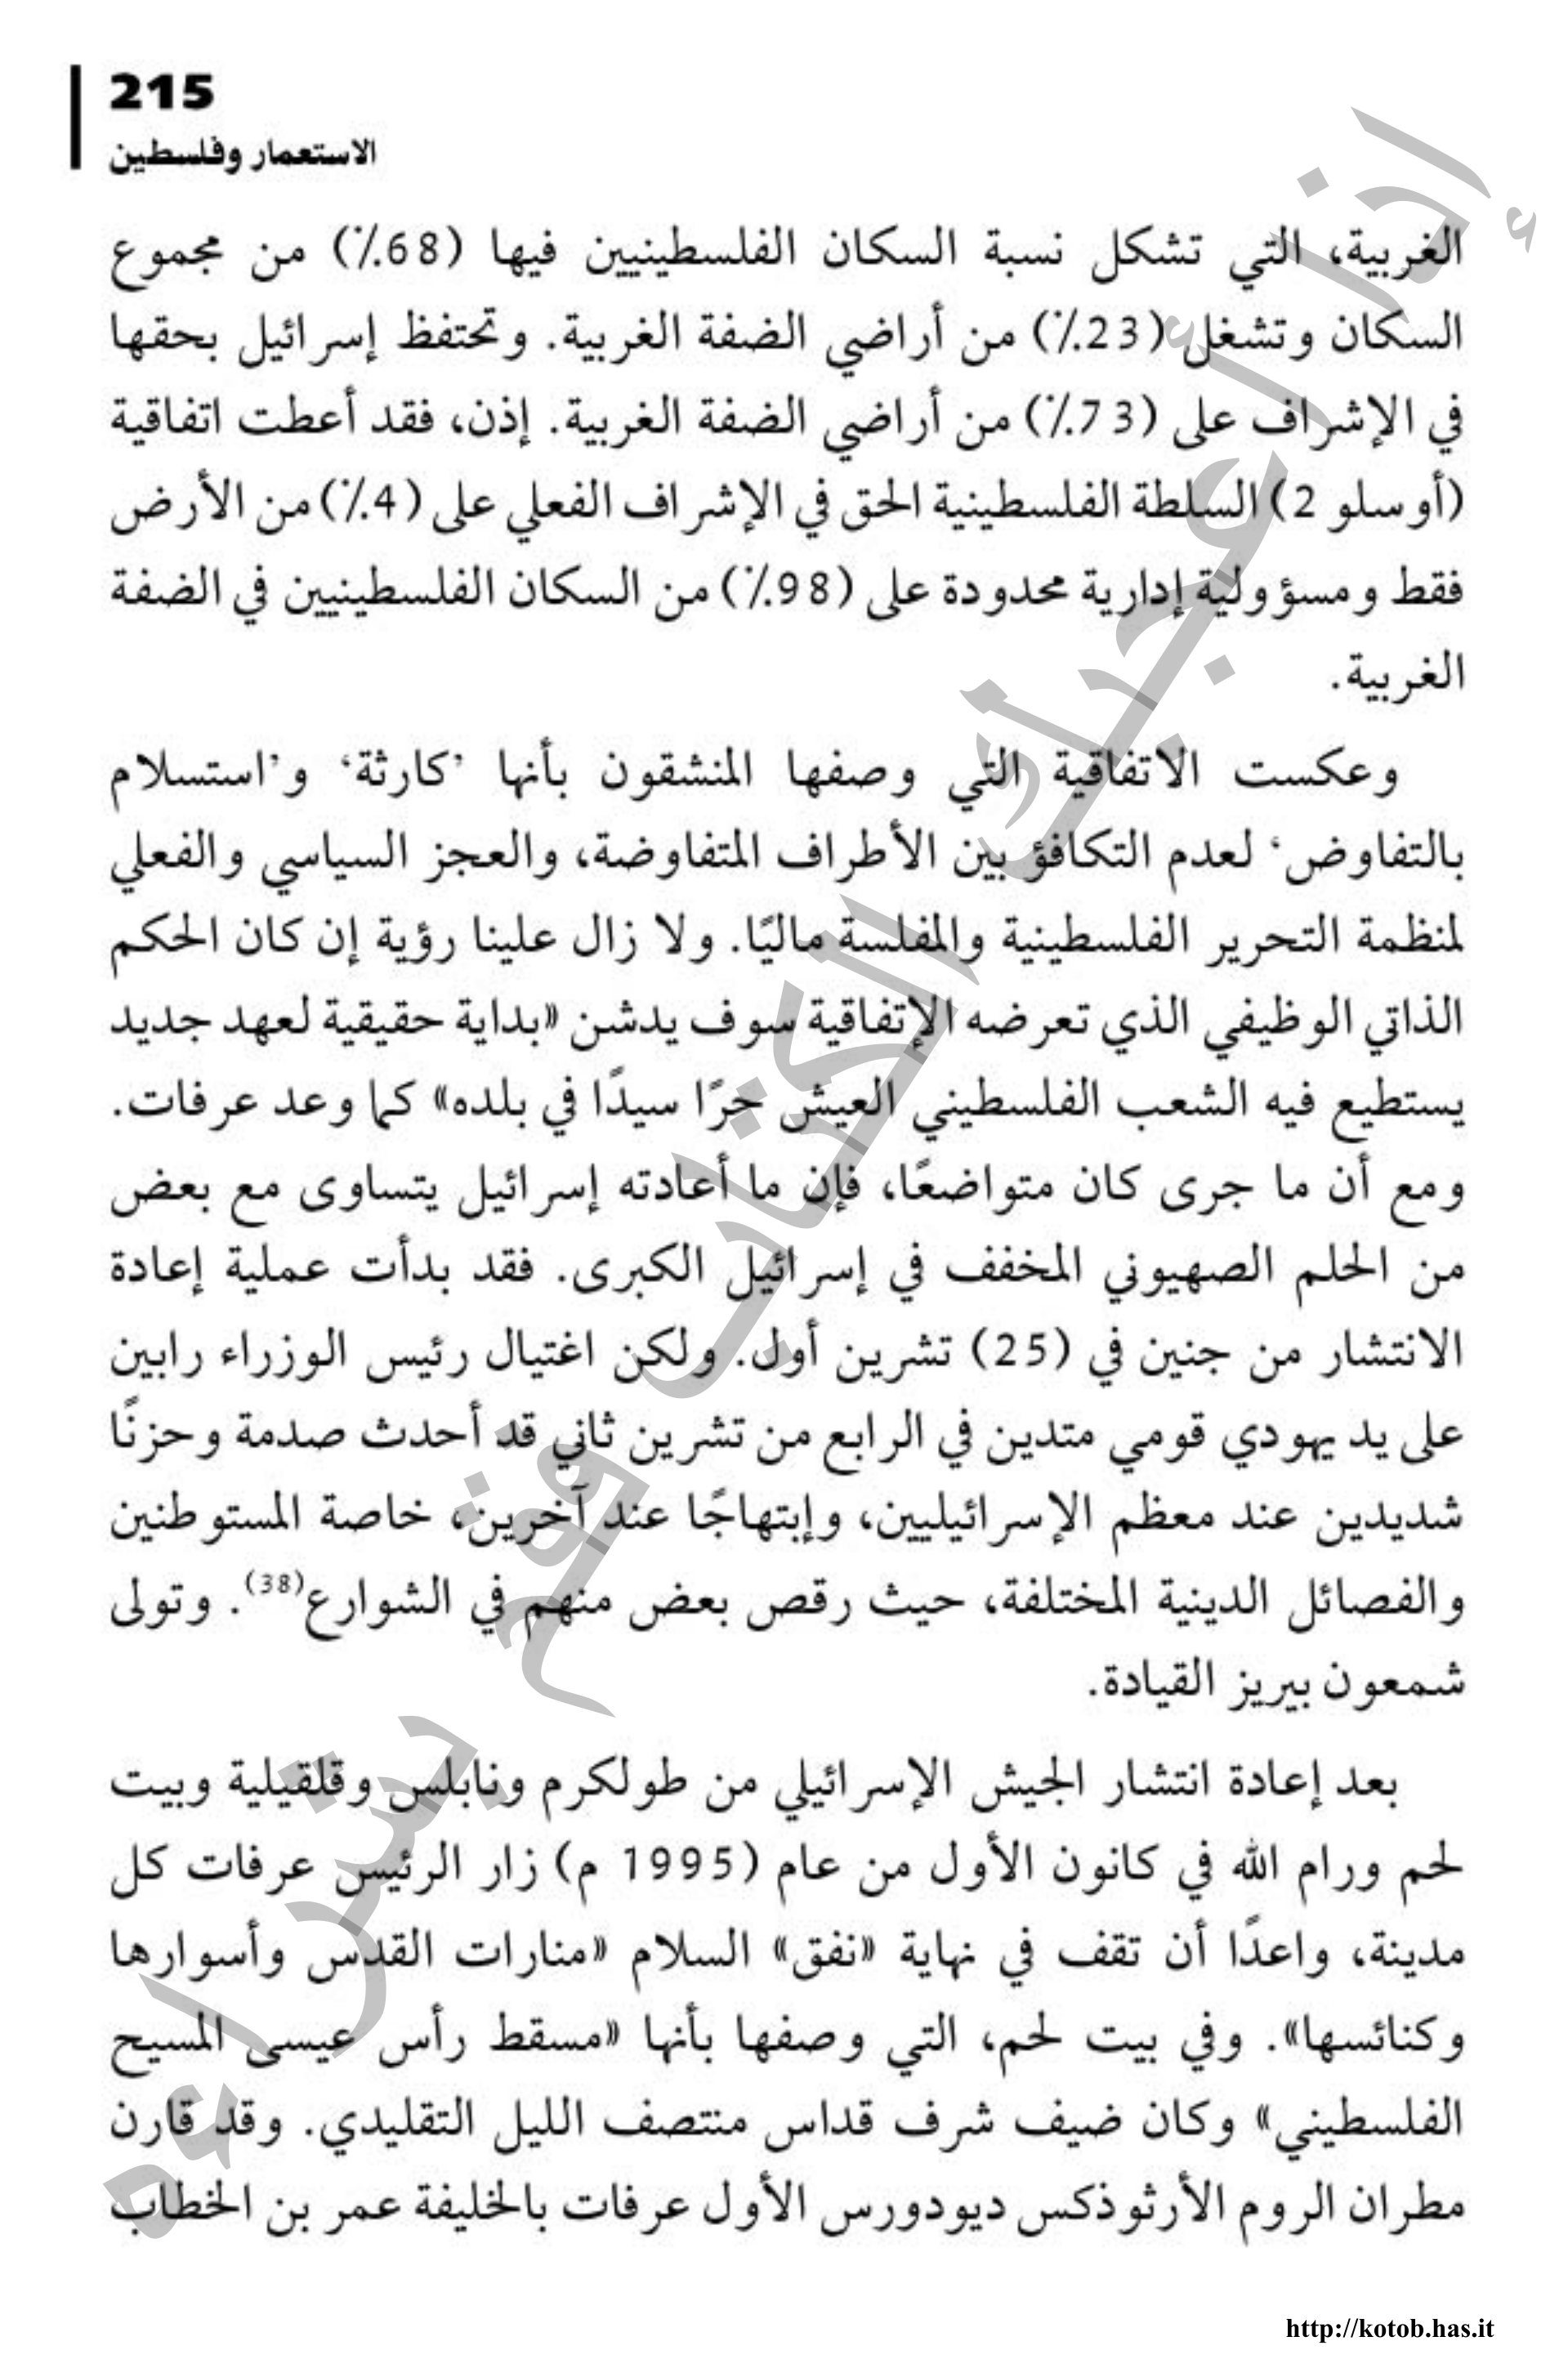 215
الاستعمار وفلسطين
الغربية، التي تشكل نسبة السكان الفلسطينيين فيها (68٪) من مجموع
السكان وتشغل (23٪) من أراضي الضفة الغربية. وتحتفظ إسرائيل بحقها
في الإشراف على (73٪) من أراضي الضفة الغربية. إذن، فقد أعطت اتفاقية
(أوسلو 2) السلطة الفلسطينية الحق في الإشراف الفعلي على (4٪) من الأرض
فقط ومسؤولية إدارية محدودة على (98٪) من السكان الفلسطينيين في الضفة
الغربية.
وعكست الاتفاقية التي وصفها المنشقون بأنها ’كارثة‘ و’استسلام
بالتفاوض‘ لعدم التكافؤ بين الأطراف المتفاوضة، والعجز السياسي والفعلي
لمنظمة التحرير الفلسطينية والمفلسة ماليًا. ولا زال علينا رؤية إن كان الحكم
الذاتي الوظيفي الذي تعرضه الإتفاقية سوف يدشن «بداية حقيقية لعهد جديد
يستطيع فيه الشعب الفلسطيني العيش حرًا سيدًا في بلده» كما وعد عرفات.
ومع أن ما جرى كان متواضعًا، فإن ما أعادته إسرائيل يتساوى مع بعض
من الحلم الصهيوني المخفف في إسرائيل الكبرى. فقد بدأت عملية إعادة
الانتشار من جنين في (25) تشرين أول. ولكن اغتيال رئيس الوزراء رابين
على يد يهودي قومي متدين في الرابع من تشرين ثاني قد أحدث صدمة وحزنًا
شديدين عند معظم الإسرائيليين، وإبتهاجًا عند آخرين، خاصة المستوطنين
والفصائل الدينية المختلفة، حيث رقص بعض منهم في الشوارع(38). وتولى
شمعون بيريز القيادة.
بعد إعادة انتشار الجيش الإسرائيلي من طولكرم ونابلس وقلقيلية وبيت
لحم ورام الله في كانون الأول من عام (1995 م) زار الرئيس عرفات كل
مدينة، واعدًا أن تقف في نهاية «نفق» السلام «منارات القدس وأسوارها
وكنائسها». وفي بيت لحم، التي وصفها بأنها «مسقط رأس عيسى المسيح
الفلسطيني» وكان ضيف شرف قداس منتصف الليل التقليدي. وقد قارن
مطران الروم الأرثوذكس ديودورس الأول عرفات بالخليفة عمر بن الخطاب
إذا أعجبك الكتاب قم بشراءه
http://kotob.has.it